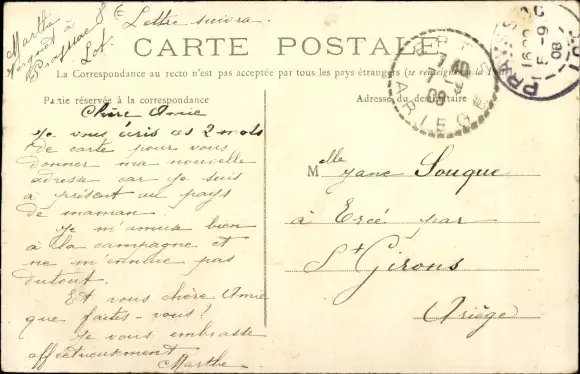 Lettre suivra.
Marthe
à
Prayssac
Lot.
CARTE POSTALE
La Correspondance au recto n'est pas acceptée par tous les pays étrangers (se renseigner à la Poste)
Partie réservée à la correspondance
Adresse du destinataire
Chère Amie
Je vous écris ces 2 mots
de carte pour vous
donner ma nouvelle
adresse car je suis
à présent au pays
de maman.
Je m'amuse bien
à la campagne et
ne m'ennuie pas
dutout.
Et vous chère Amie
que faites-vous?
Je vous embrasse
affectueusement
Marthe
Melle Souque
à Ercé par
St Girons
Ariège
ARIEGE
09